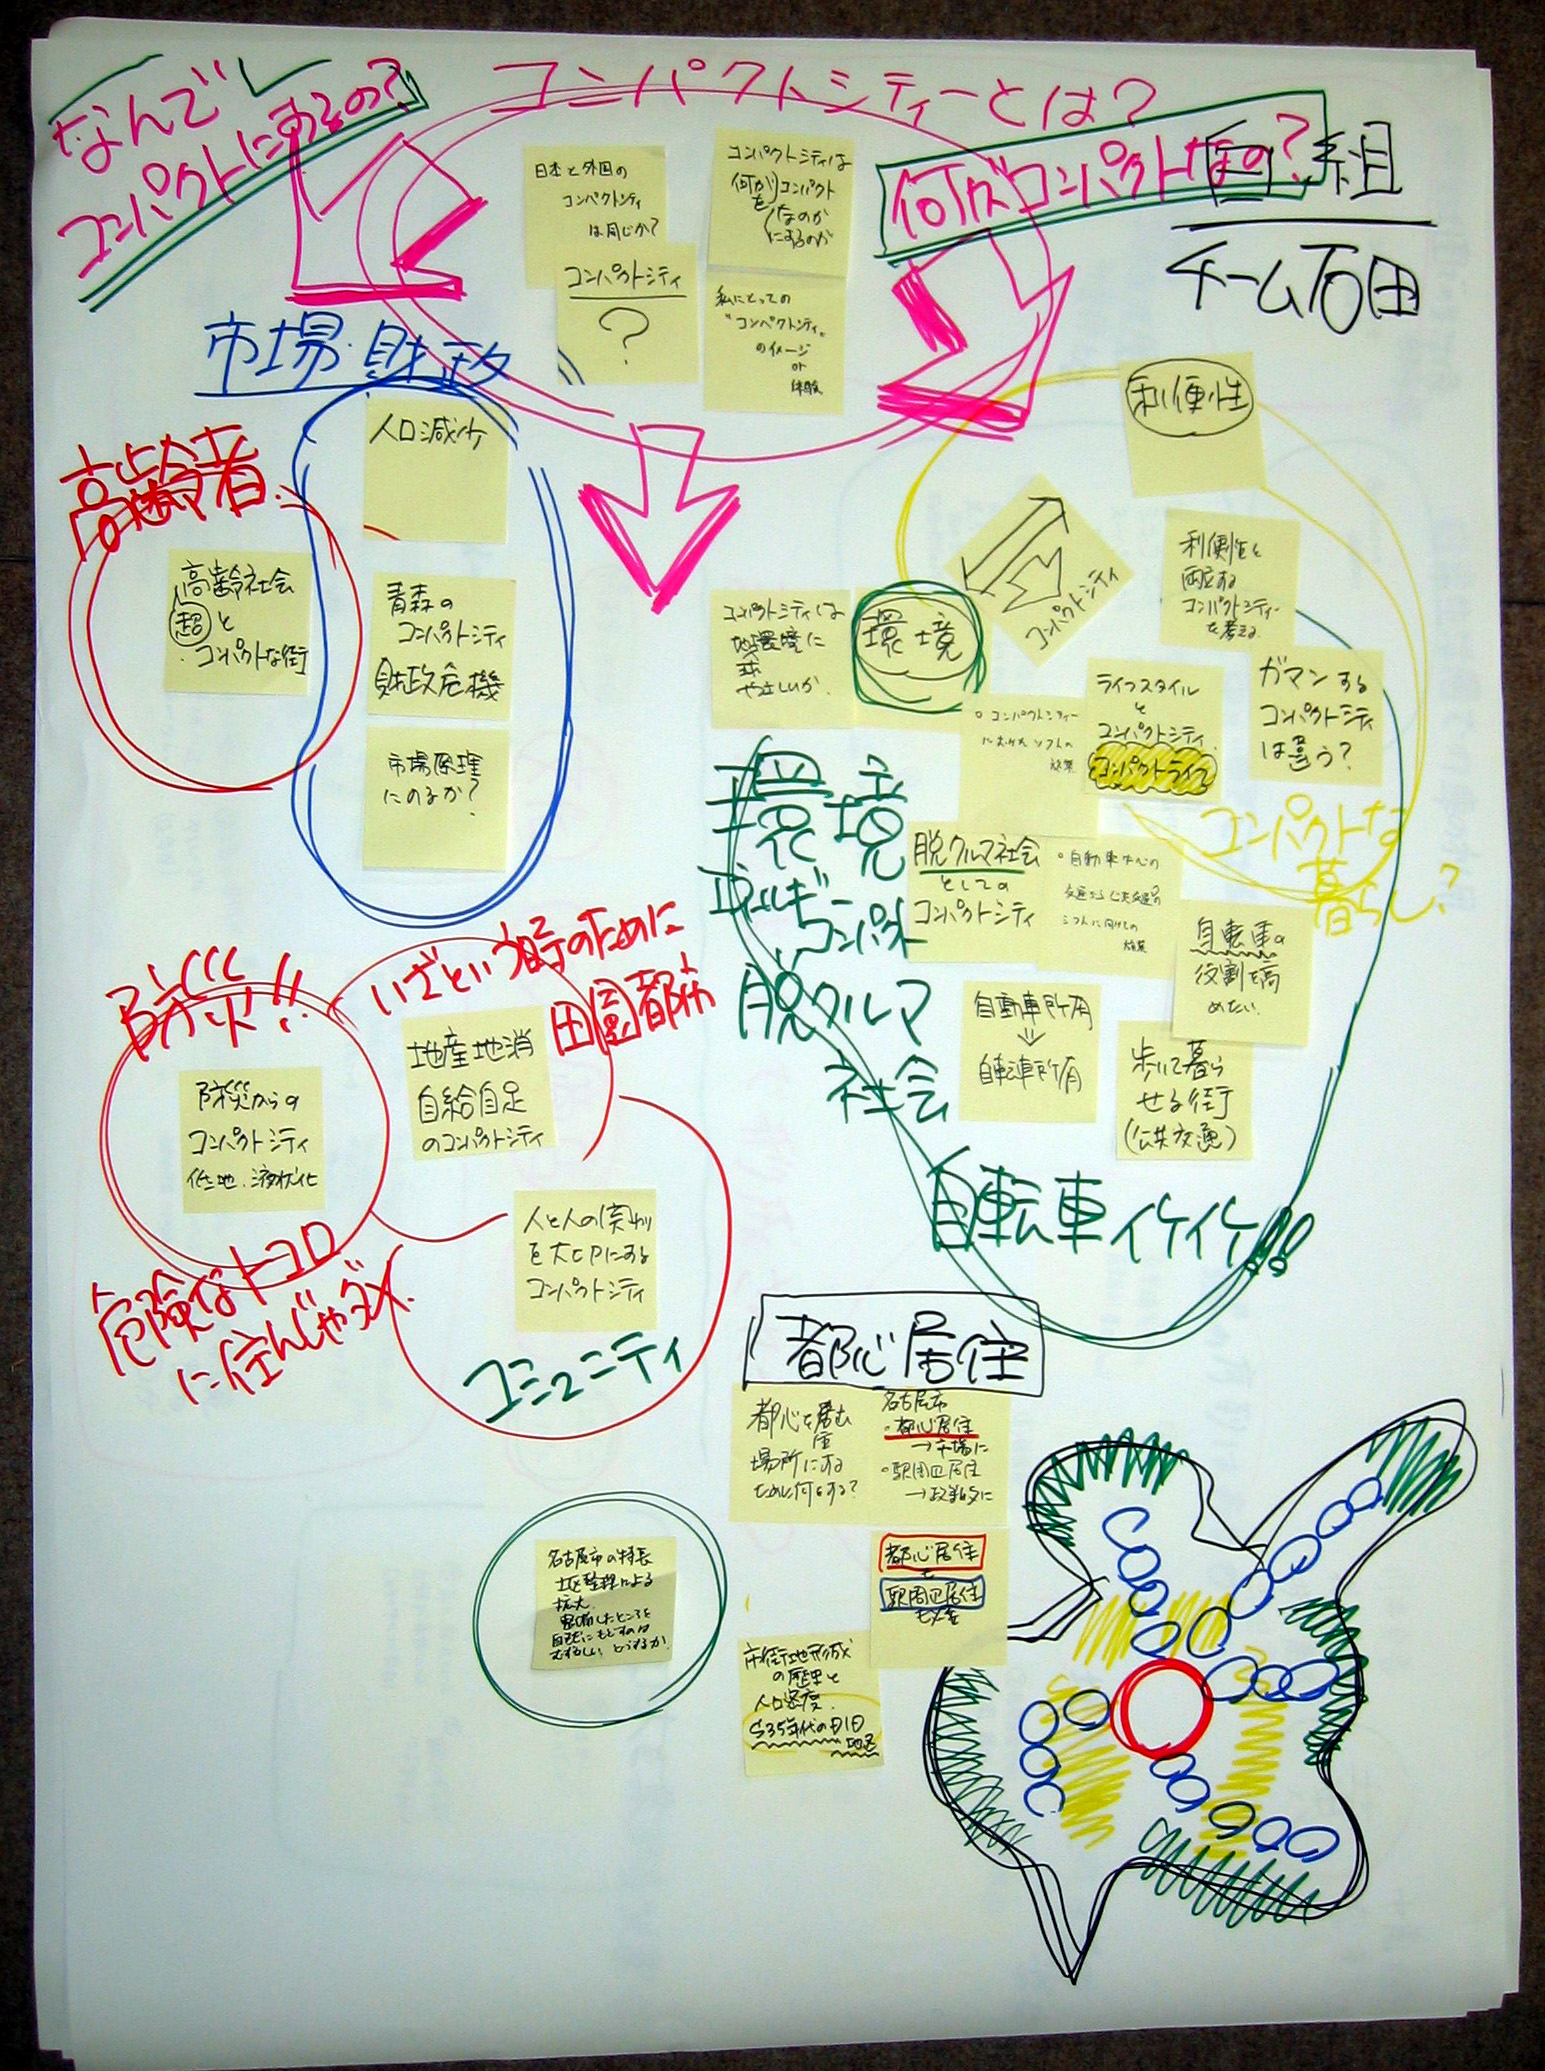 なんで
コンパクトにするの?
コンパクトシティーとは?
何がコンパクトなの?
組
チーム石田
日本と外国の
コンパクトシティ
は同じか?
コンパクトシティは
何が
を
コンパクト
なのか
にするのか
コンパクトシティ
?
私にとっての
"コンパクトシティ"
のイメージ
or
体験
市場・財政
人口減少
青森の
コンパクトシティ
財政危機
市場原理
にのるか?
高齢者
高齢社会
超と
コンパクトな街
利便性
コンパクトシティ
利便性と
両立する
コンパクトシティー
を考える
コンパクトシティは
地球環境に
やさしいか
環境
コンパクトシティー
ライフスタイル
と
コンパクトシティ
コンパクトライフ
ガマンする
コンパクトシティ
は違う?
コンパクトな
暮らし?
環境
エネルギー
コンパクト
脱クルマ
社会
脱クルマ社会
としての
コンパクトシティ
・自動車中心の
交通から公共交通の
シフトに向けての
自転車の
役割を高
めたい
自動車所有
自転車所有
歩いて暮ら
せる街
(公共交通)
自転車イケイケ!!
防災!!
防災からの
コンパクトシティ
低地・液状化
危険なトコロ
に住んじゃダメ
いざという時のために
田園都市
地産地消
自給自足
のコンパクトシティ
人と人の関わり
を大切にする
コンパクトシティ
コミュニティ
都心居住
都心を居住
場所にする
ために何をする?
名古屋市
・都心居住
→市場に
・駅周辺居住
→政策的に
都心居住
と
駅周辺居住
名古屋市の特長
区画整理による
拡大
整備したところを
自然にもどすのは
むずかしい どうするか
市街地形成
の歴史と
人口密度
S35年代のDID
地区